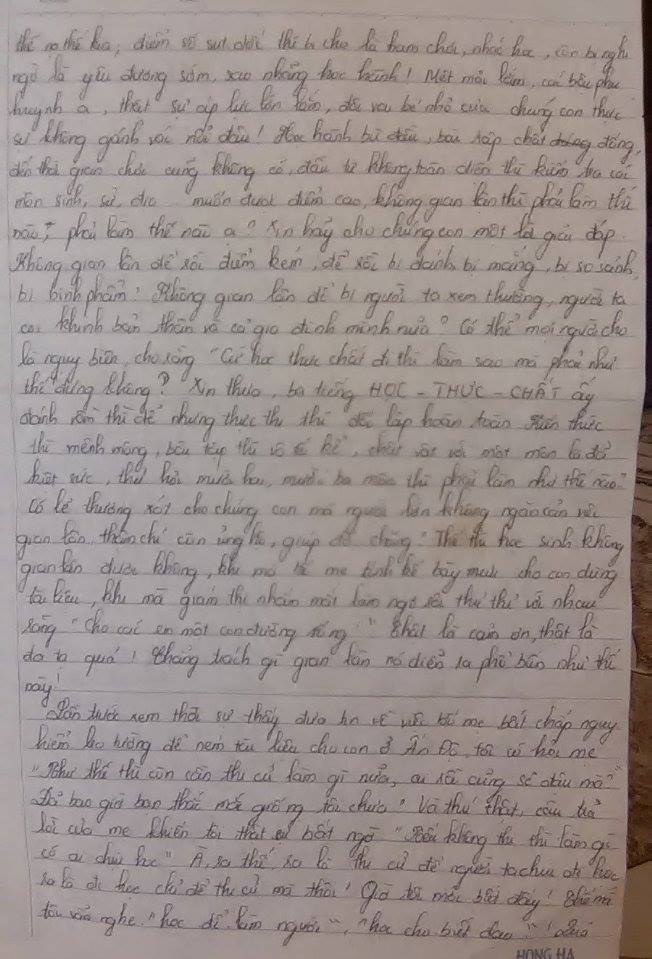 thế nọ thế kia, điểm số sụt dưới thì bị cho là ham chơi, nhác học, còn bị nghi
ngờ là yêu đương sớm, xao nhãng học hành! Mệt mỏi lắm, các bậc phụ
huynh ạ, thật sự áp lực lớn lắm, đôi vai bé nhỏ của chúng con thực
sự không gánh vác nổi đâu! Học hành bù đầu, bài tập chất đống,
đến thời gian chơi cũng không có, đầu tư không toàn diện thì kiểm tra các
môn sinh, sử, địa ... muốn được điểm cao, không gian lận thì phải làm thế
nào, phải làm thế nào ạ? Xin hãy cho chúng con một lời giải đáp.
Không gian lận để rồi điểm kém, để rồi bị đánh, bị mắng, bị so sánh,
bị bình phẩm? Không gian lận để bị người ta xem thường, người ta
coi khinh bản thân và cả gia đình mình nữa? Có thể mọi người cho
là ngụy biện, cho rằng "Cứ học thực chất đi thì làm sao mà phải như
thế đúng không? Xin thưa, ba tiếng HỌC - THỰC - CHẤT ấy
đánh vần thì dễ nhưng thực thi thì đối lập hoàn toàn. Kiến thức
thì mênh mông, bài tập thì vô số kể, chật vật với một môn là đã
kiệt sức, thử hỏi mười hai, mười ba môn thì phải làm như thế nào?
Có lẽ thương xót cho chúng con mà người lớn không ngăn cản việc
gian lận, thậm chí còn ủng hộ, giúp đỡ chăng? Thế thì học sinh không
gian lận được không, khi mà bố mẹ tính kế bày mưu cho con dùng
tài liệu, khi mà giám thị nhắm mắt làm ngơ rồi thư thư với nhau
rằng "Cho các em một con đường sống!" Thật là cảm ơn, thật là
đa tạ quá! Chẳng trách gì gian lận nó diễn ra phổ biến như thế
này!
Lần trước xem thời sự thấy đưa tin về việc bố mẹ bất chấp nguy
hiểm leo tường để ném tài liệu cho con ở Ấn Độ, tôi có hỏi mẹ
"Như thế thì còn cần thi cử làm gì nữa, ai rồi cũng sẽ đậu mà?"
Đã bao giờ bạn thắc mắc giống tôi chưa? Và thú thật, câu trả
lời của mẹ khiến tôi thật sự bất ngờ "Nếu không thi thì làm gì
có ai chịu học" À, ra thế, ra là thi cử để người ta chịu đi học
ra là đi học chỉ để thi cử mà thôi! Giờ tôi mới biết đấy! Thế mà
tôi vẫn nghe "học để làm người", "học cho biết đạo"
HONG HA